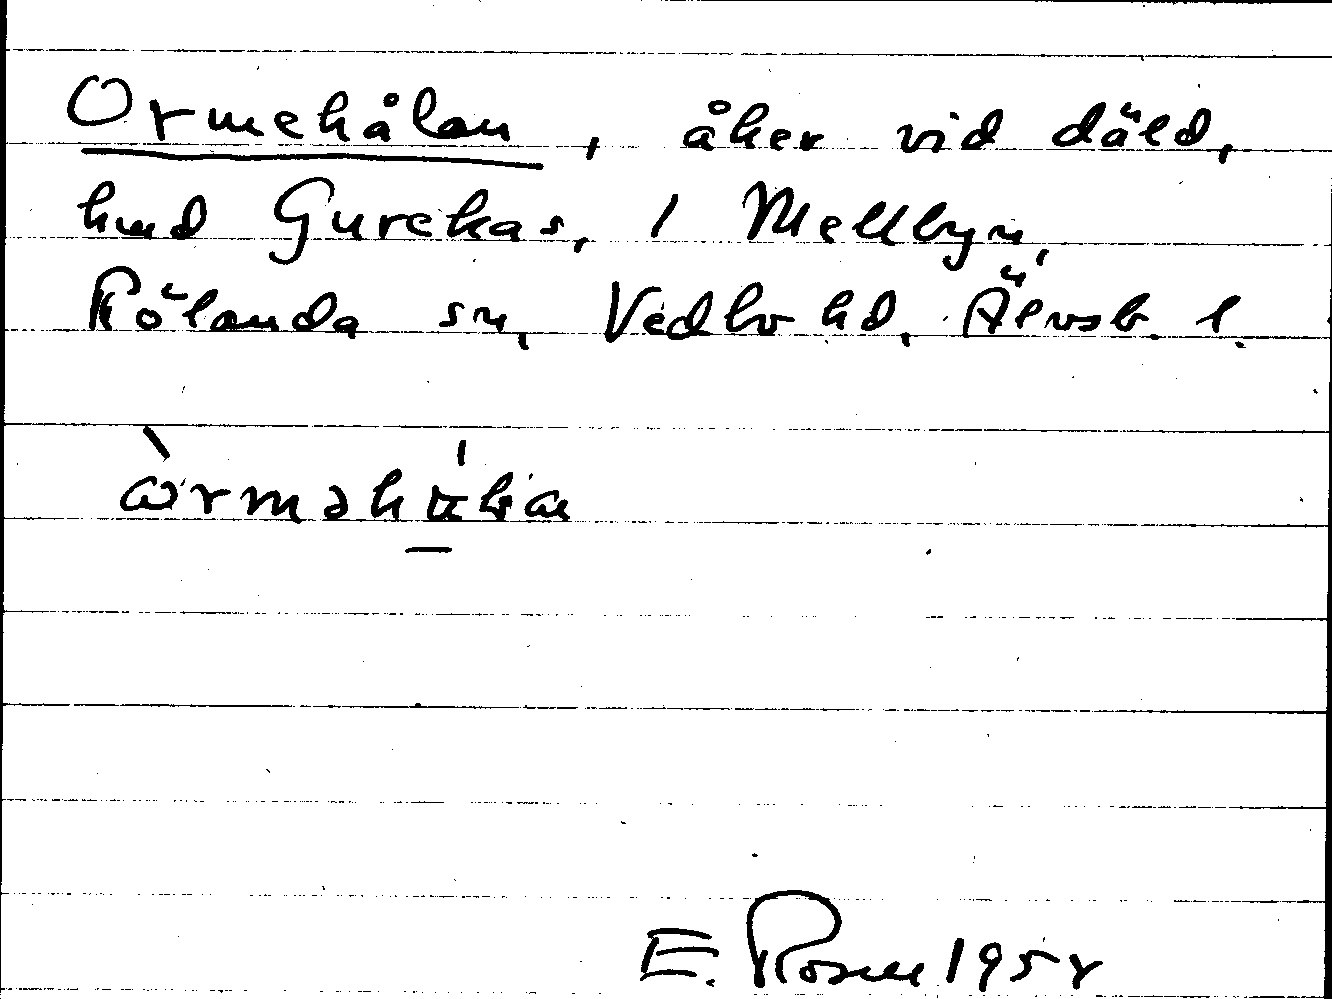 Ormehålan, åker vid däld,
hmd Gurekas, 1 Mellbyn,
Rölanda sn, Vedbo hd, Älvsb. l.
E. Rosell 195